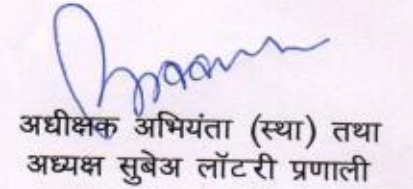 अधीक्षक अभियंता (स्था) तथा
अध्यक्ष सुबेअ लॉटरी प्रणाली